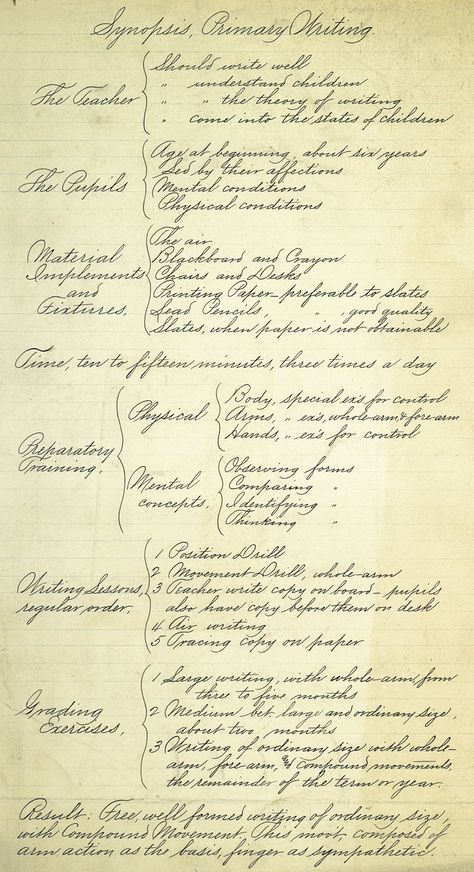 Synopsis, Primary Writing.
The Teacher
Should write well
" understand children
" " the theory of writing
" come into the states of children
The Pupils
Age at beginning, about six years
Led by their affections
Mental conditions
Physical conditions
Material
Implements
and
Fixtures.
The air
Blackboard and Crayon
Chairs and Desks
Printing Paper - preferable to slates
Lead Pencils, " good quality
Slates, when paper is not obtainable
Time, ten to fifteen minutes, three times a day
Preparatory
Training.
Physical
Body, special ex's for control
Arms, " ex's, whole-arm & fore-arm
Hands, " ex's for control
Mental
concepts.
Observing forms
Comparing "
Identifying "
Thinking "
Writing Lessons,
regular order.
1 Position Drill
2 Movement Drill, whole-arm
3 Teacher write copy on board - pupils
also have copy before them on desk
4 Air writing
5 Tracing copy on paper
Grading
Exercises,
1 Large writing, with whole-arm, from
three to five months
2 Medium bet. large and ordinary size,
about two months
3 Writing of ordinary size with whole-
arm, fore-arm, and compound movements,
the remainder of the term or year.
Result: Free, well formed writing of ordinary size,
with Compound Movement. This mov't. composed of
arm action as the basis, finger as sympathetic.